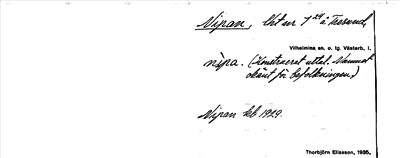 Nipan,
Vilhelmina sn. o. tg. Västerb. l.
nìpa. (Konstruerat uttal. Namnet
okänt för befolkningen.)
Nipan kb 1929.
Thorbjörn Eliasson, 1935.